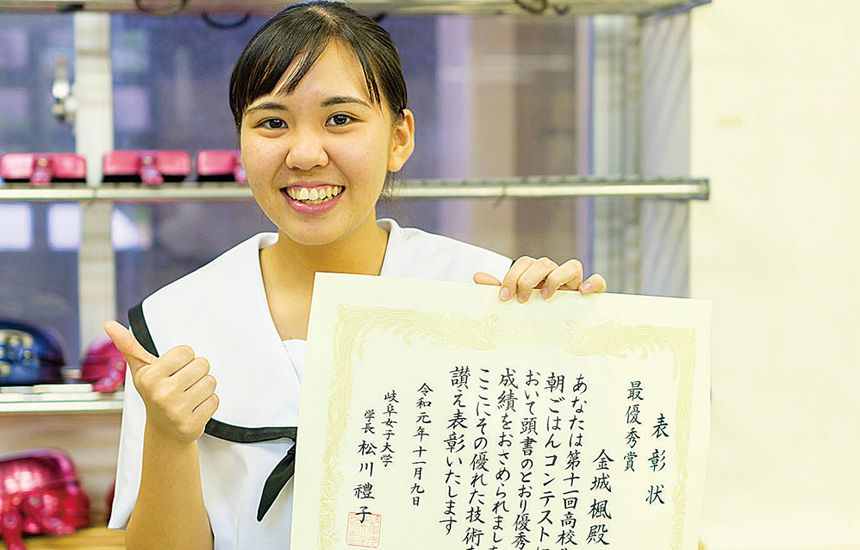 表彰状
最優秀賞
金城 楓 殿
あなたは第十一回高校生
朝ごはんコンテストに
おいて頭書のとおり優秀
成績をおさめられまし
ここにその優れた技術
讃え表彰いたします
令和元年十一月九日
岐阜女子大学
学長 松川 禮子